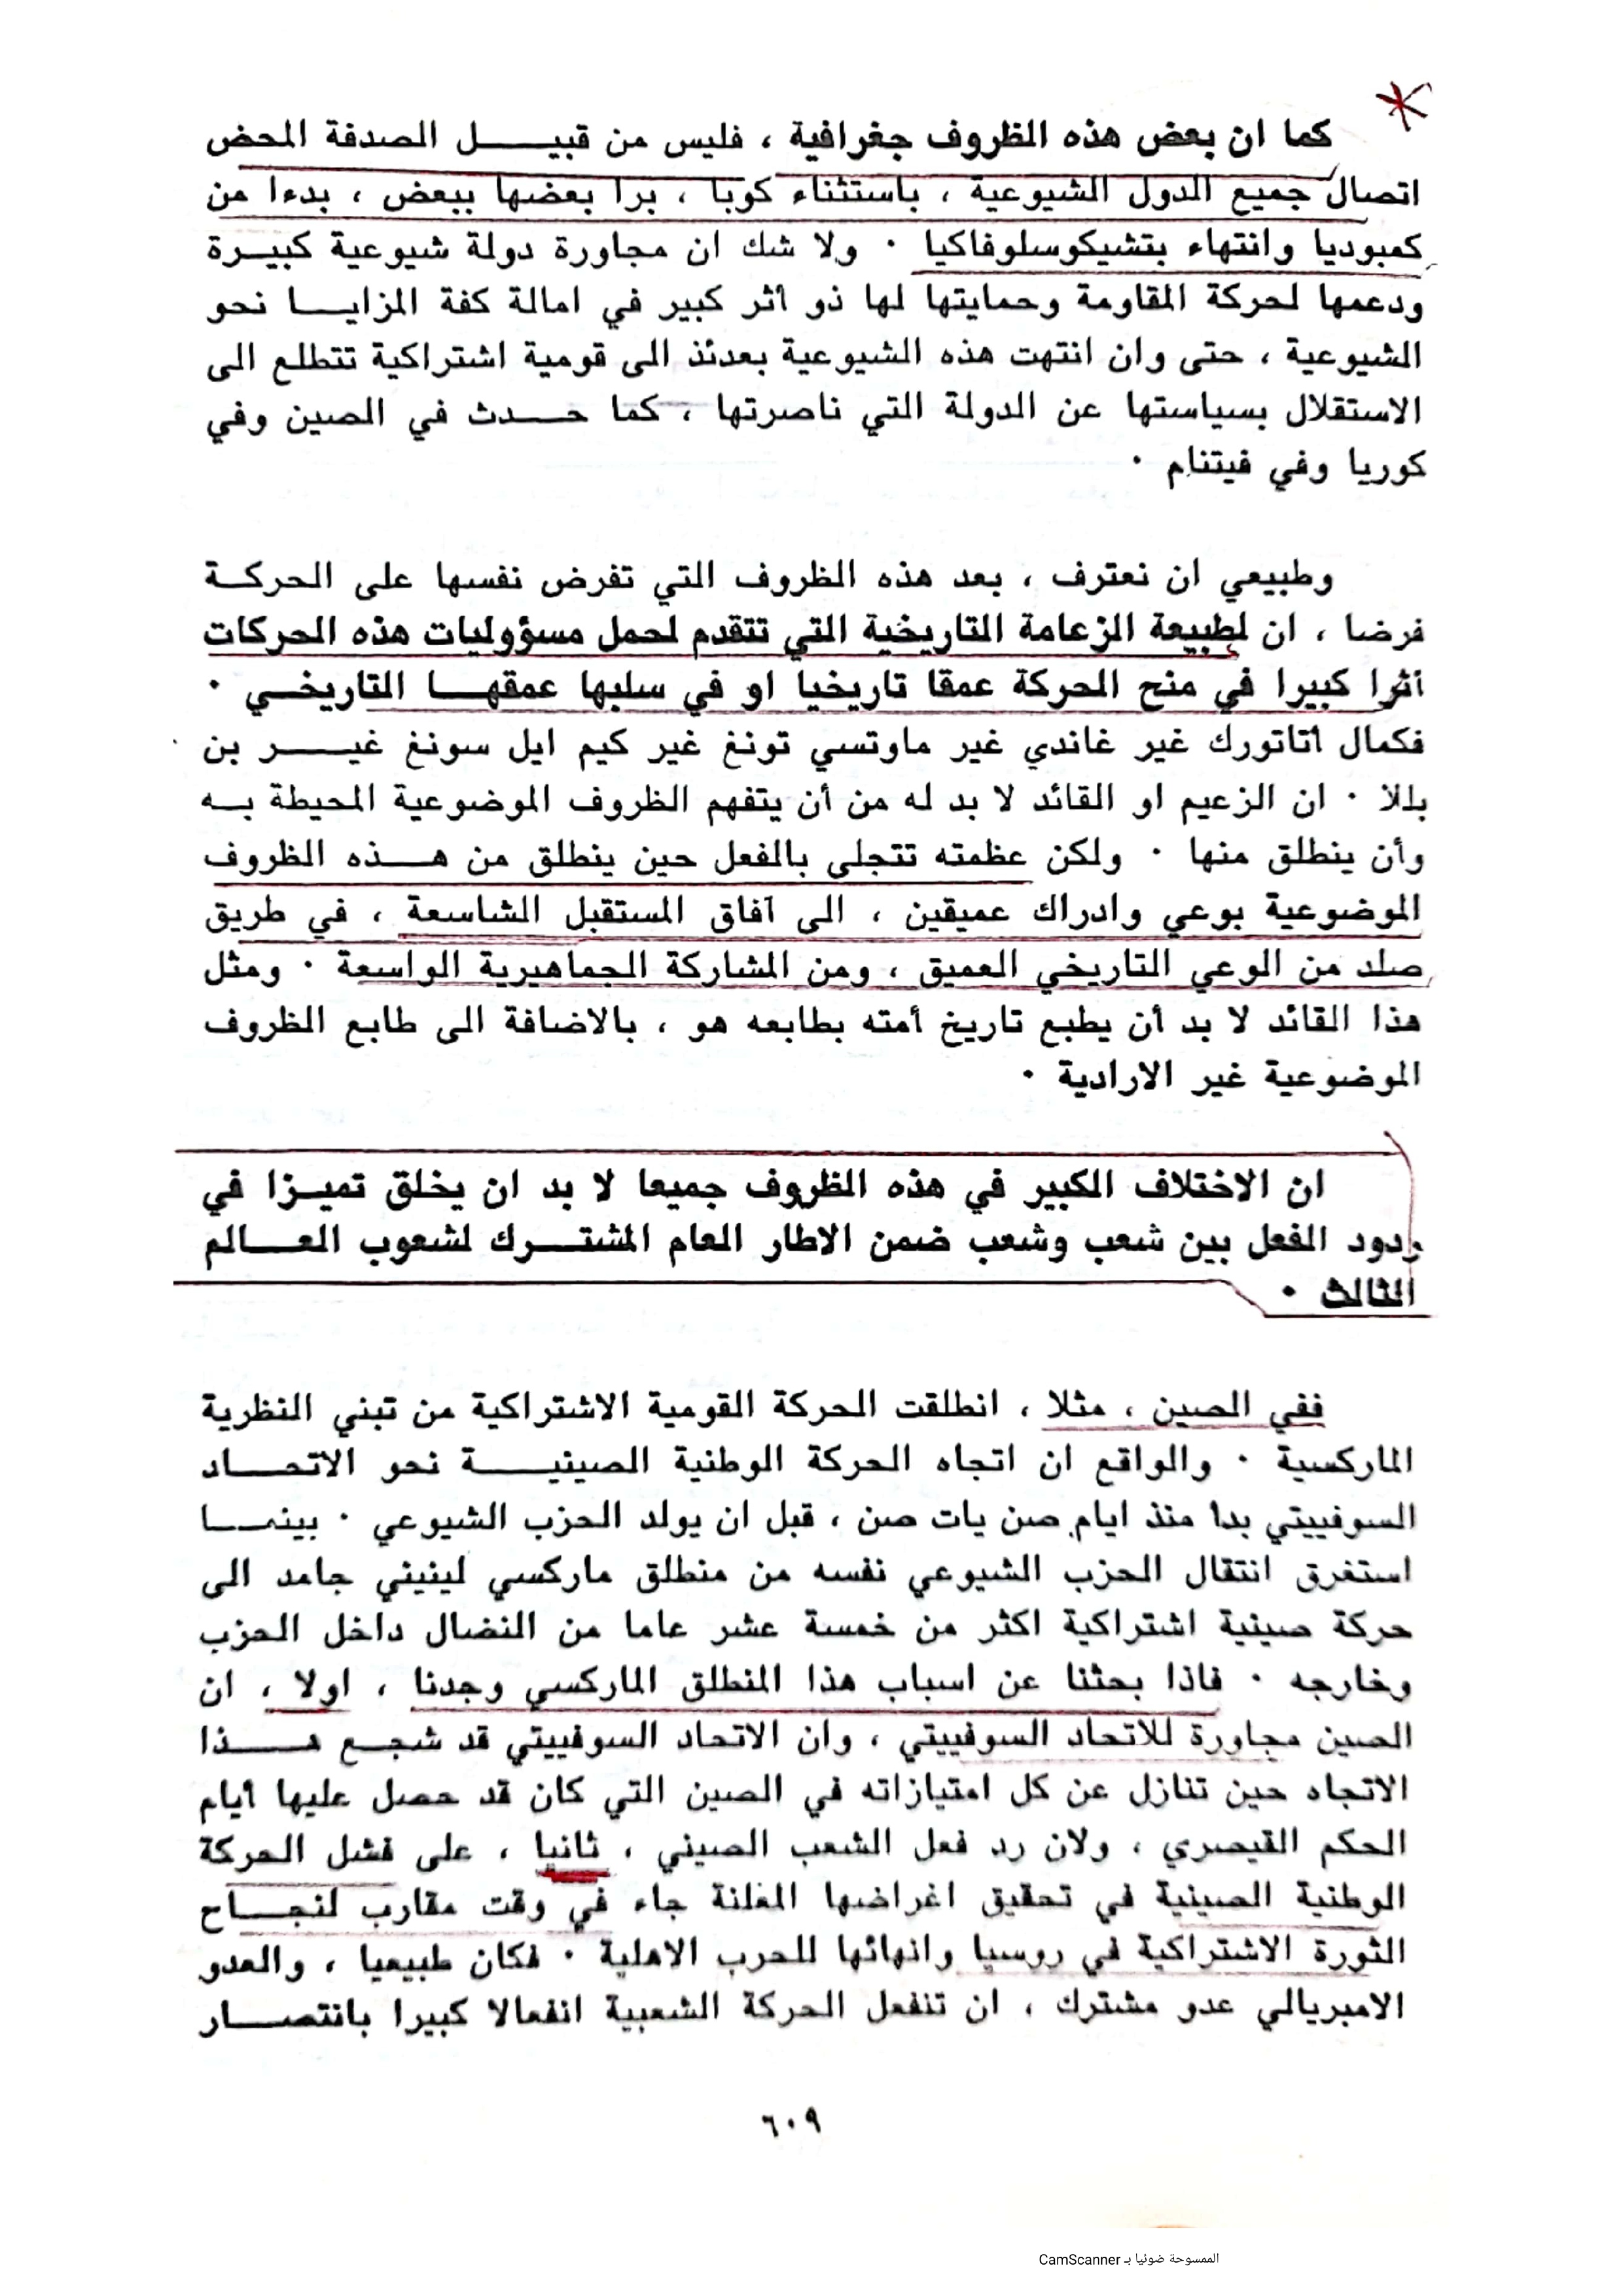 كما ان بعض هذه الظروف جغرافية ، فليس من قبيل الصدفة المحض
اتصال جميع الدول الشيوعية ، باستثناء كوبا ، برا بعضها ببعض ، بدءا من
كمبوديا وانتهاء بتشيكوسلوفاكيا ٠ ولا شك ان مجاورة دولة شيوعية كبيرة
ودعمها لحركة المقاومة وحمايتها لها ذو أثر كبير في امالة كفة المزايا نحو
الشيوعية ، حتى وان انتهت هذه الشيوعية بعدئذ الى قومية اشتراكية تتطلع الى
الاستقلال بسياستها عن الدولة التي ناصرتها ، كما حدث في الصين وفي
كوريا وفي فيتنام ٠
وطبيعي ان نعترف ، بعد هذه الظروف التي تفرض نفسها على الحركة
فرضا ، ان لطبيعة الزعامة التاريخية التي تتقدم لحمل مسؤوليات هذه الحركات
أثرا كبيرا في منح الحركة عمقا تاريخيا او في سلبها عمقها التاريخي ٠
فكمال أتاتورك غير غاندي غير ماوتسي تونغ غير كيم ايل سونغ غير بن
بللا ٠ ان الزعيم او القائد لا بد له من أن يتفهم الظروف الموضوعية المحيطة به
وأن ينطلق منها ٠ ولكن عظمته تتجلى بالفعل حين ينطلق من هذه الظروف
الموضوعية بوعي وادراك عميقين ، الى آفاق المستقبل الشاسعة ، في طريق
صلد من الوعي التاريخي العميق ، ومن المشاركة الجماهيرية الواسعة ٠ ومثل
هذا القائد لا بد أن يطبع تاريخ أمته بطابعه هو ، بالاضافة الى طابع الظروف
الموضوعية غير الارادية ٠
ان الاختلاف الكبير في هذه الظروف جميعا لا بد ان يخلق تميزا في
ردود الفعل بين شعب وشعب ضمن الاطار العام المشترك لشعوب العالم
الثالث ٠
ففي الصين ، مثلا ، انطلقت الحركة القومية الاشتراكية من تبني النظرية
الماركسية ٠ والواقع ان اتجاه الحركة الوطنية الصينية نحو الاتحاد
السوفييتي بدا منذ ايام صن يات صن ، قبل ان يولد الحزب الشيوعي ٠ بينما
استغرق انتقال الحزب الشيوعي نفسه من منطلق ماركسي لينيني جامد الى
حركة صينية اشتراكية اكثر من خمسة عشر عاما من النضال داخل الحزب
وخارجه ٠ فاذا بحثنا عن اسباب هذا المنطلق الماركسي وجدنا ، اولا ، ان
الصين مجاورة للاتحاد السوفييتي ، وان الاتحاد السوفييتي قد شجع هذا
الاتجاه حين تنازل عن كل امتيازاته في الصين التي كان قد حصل عليها أيام
الحكم القيصري ، ولان رد فعل الشعب الصيني ، ثانيا ، على فشل الحركة
الوطنية الصينية في تحقيق اغراضها المعلنة جاء في وقت مقارب لنجاح
الثورة الاشتراكية في روسيا وانهائها للحرب الاهلية ٠ فكان طبيعيا ، والعدو
الامبريالي عدو مشترك ، ان تنفعل الحركة الشعبية انفعالا كبيرا بانتصار
٦٠٩
الممسوحة ضوئيا بـ CamScanner